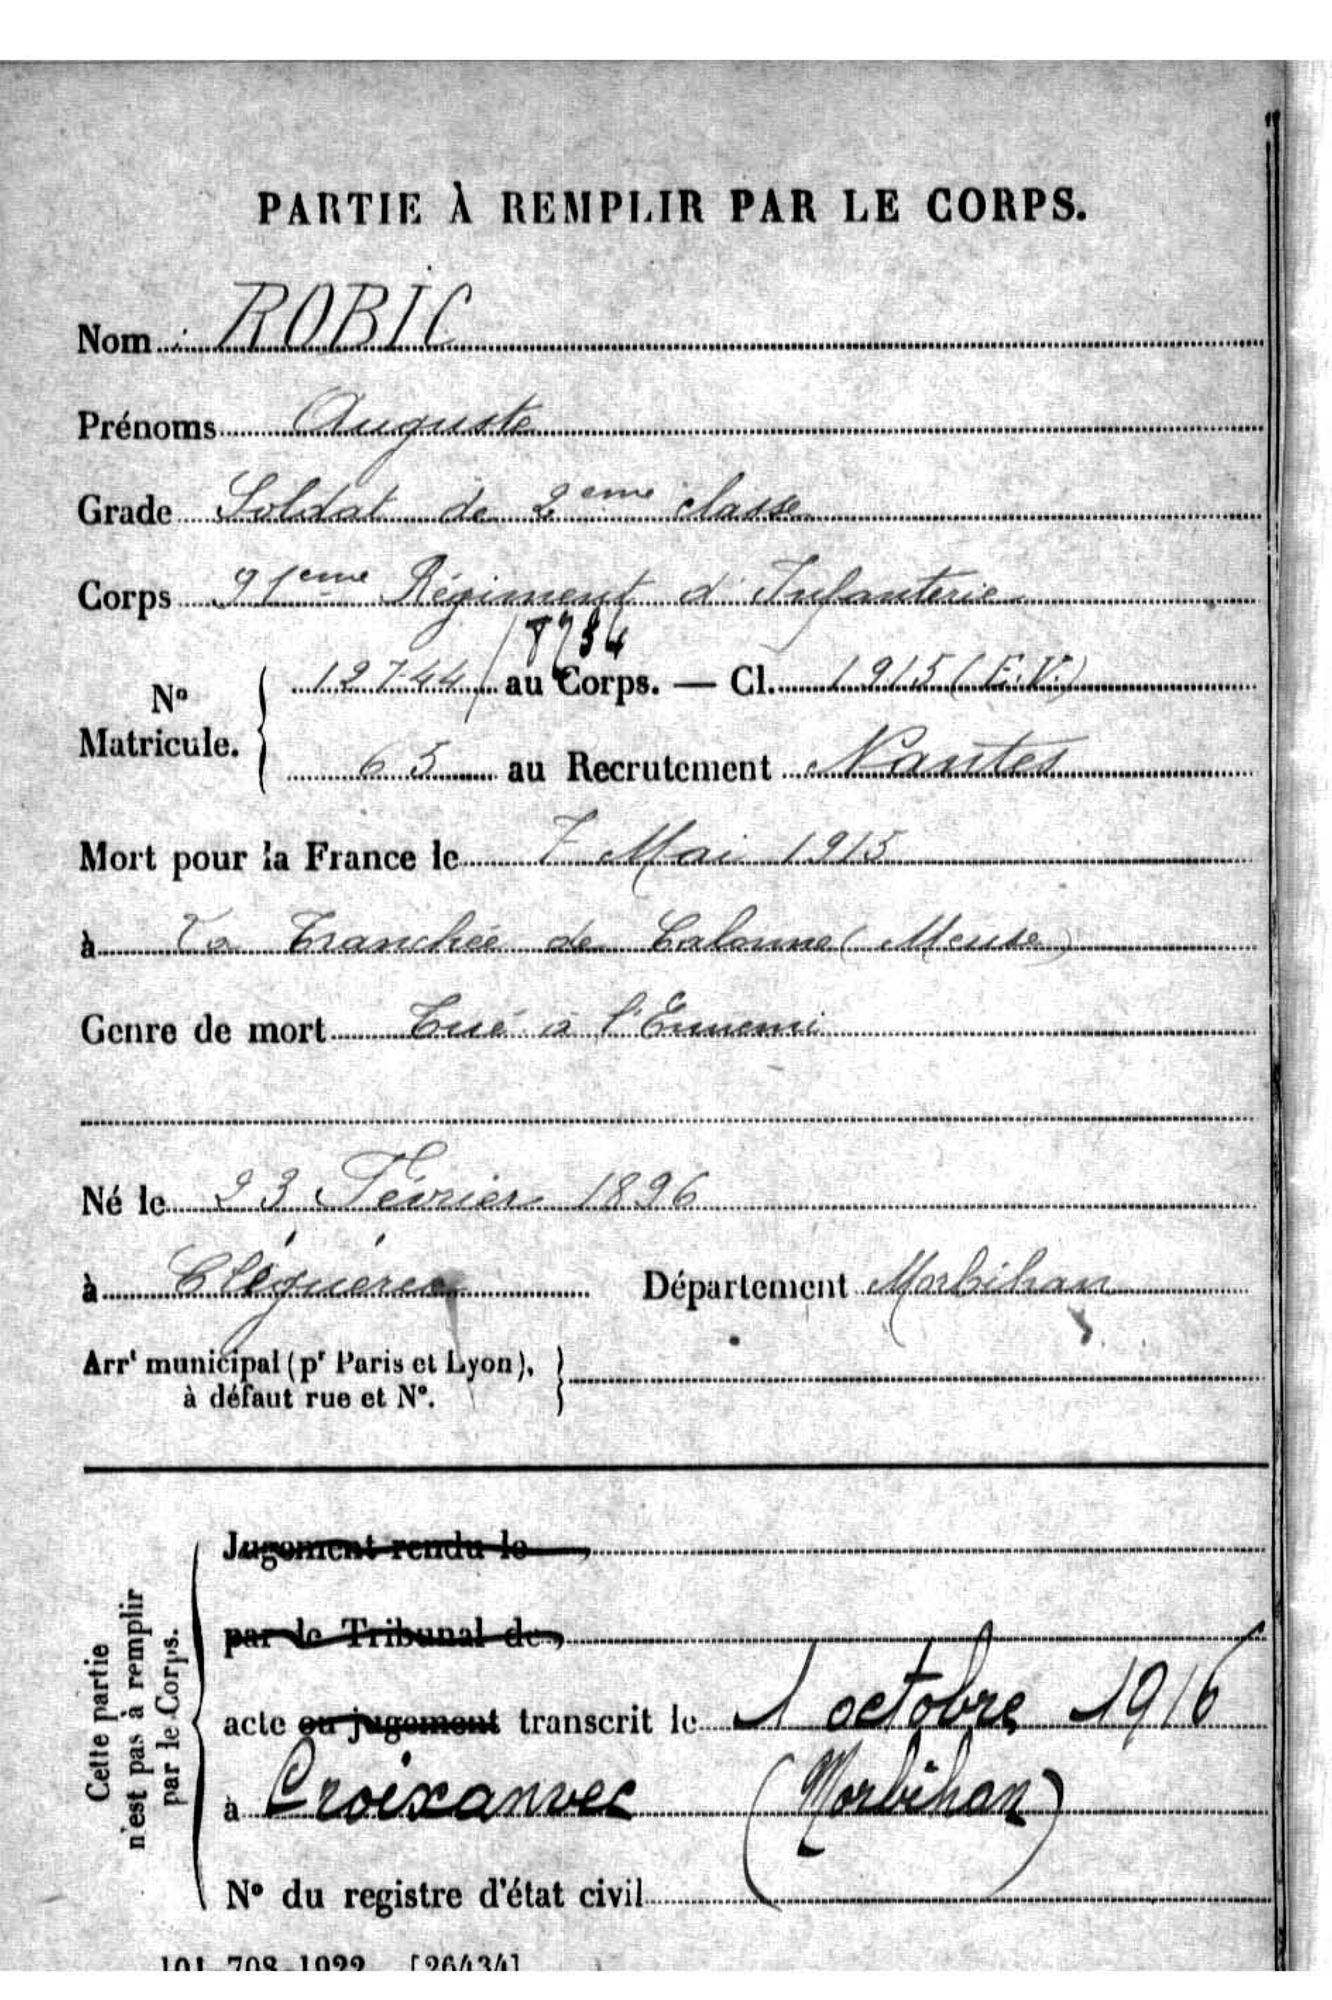 PARTIE À REMPLIR PAR LE CORPS.
Nom : ROBIC
Prénoms Auguste
Grade Soldat de 2eme classe
Corps 91eme Régiment d'Infanterie
8734
N° Matricule. 12744 / au Corps. — Cl. 1915 (E.V.)
65 au Recrutement Nantes
Mort pour la France le 7 Mai 1915
à La Tranchée de Calonne (Meuse)
Genre de mort Tué à l'Ennemi
Né le 23 Février 1896
à Cléguérec Département Morbihan
Arrt municipal (pr Paris et Lyon),
à défaut rue et N°.
Cette partie
n'est pas à remplir
par le Corps.
Jugement rendu le
par le Tribunal de
acte ou jugement transcrit le 1 octobre 1916
à Croixanvec (Morbihan)
N° du registre d'état civil
101-708-1922 [26434]